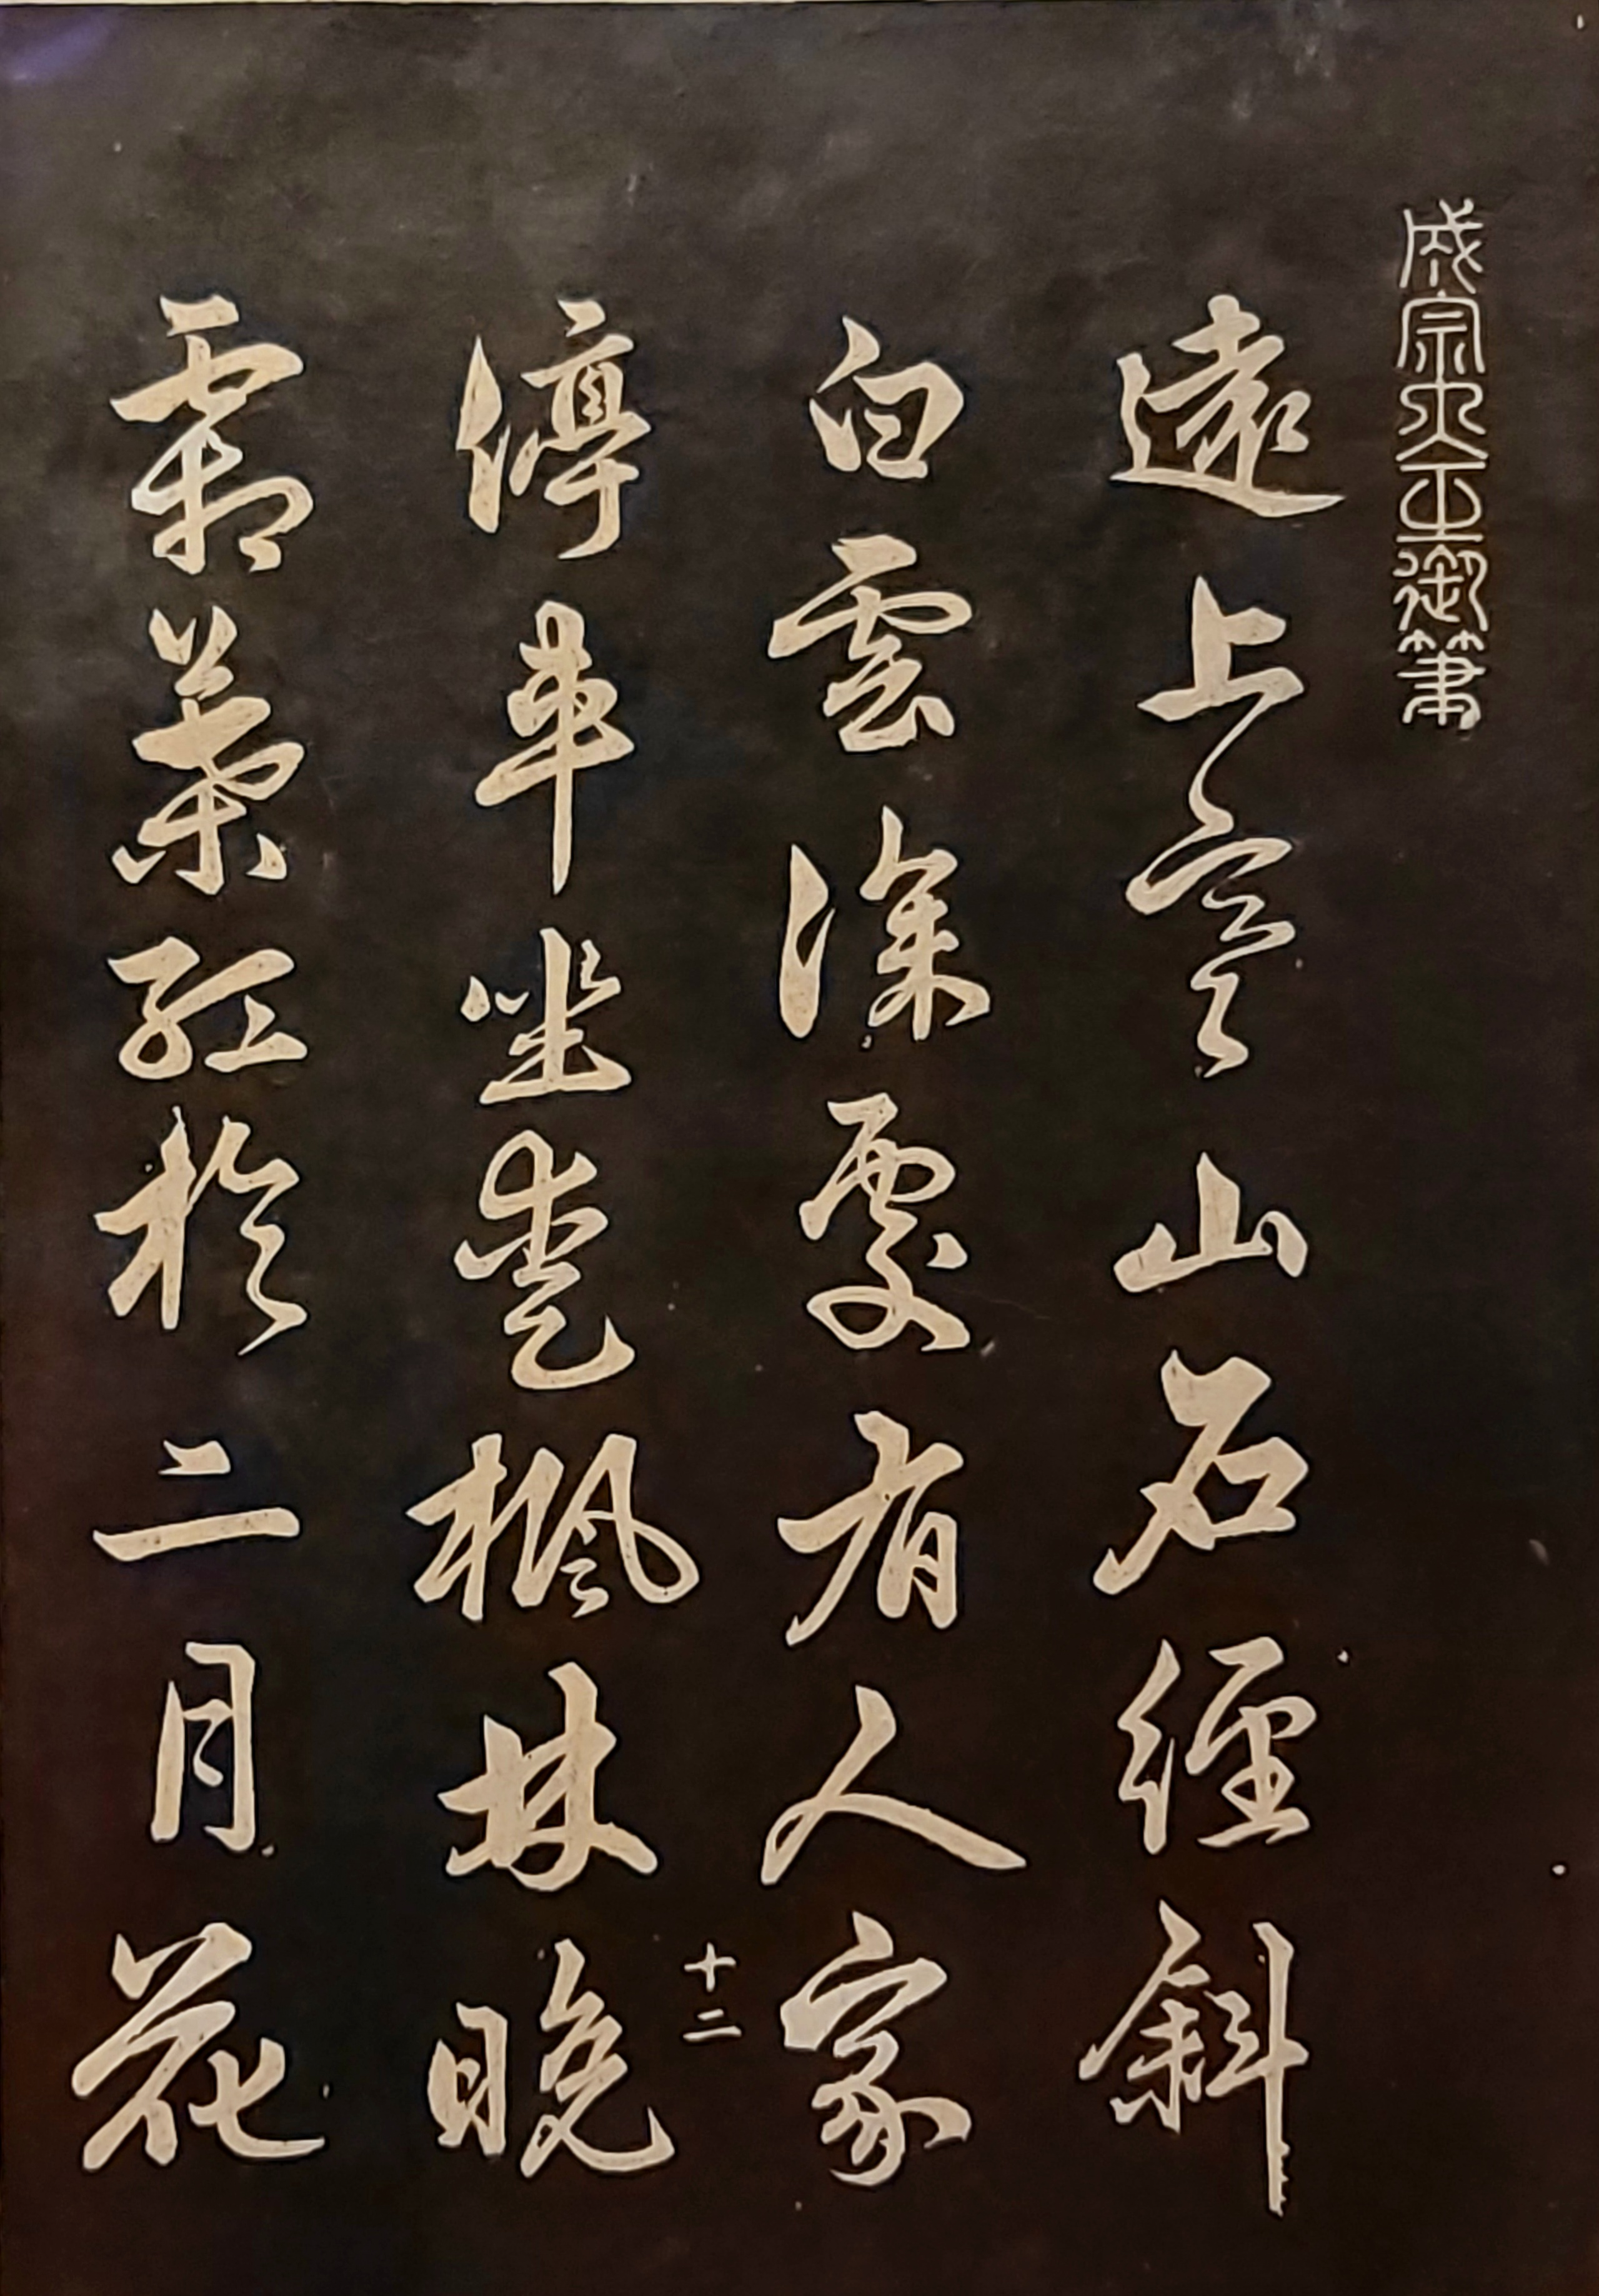 成宗大王御筆
遠上寒山石經斜
白雲深處有人家
十二
停車坐愛楓林晚
霜葉紅於二月花